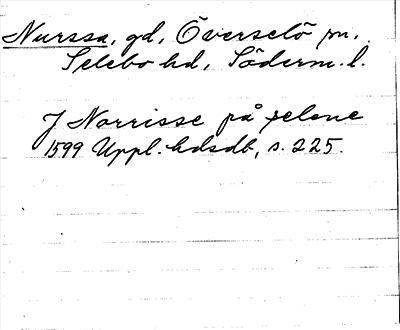 Nurssa, gd, Överselö sn,
Selebo hd, Söderm. l.
J Norrisse på selene
1599 Uppl. hdsdb, s. 225.